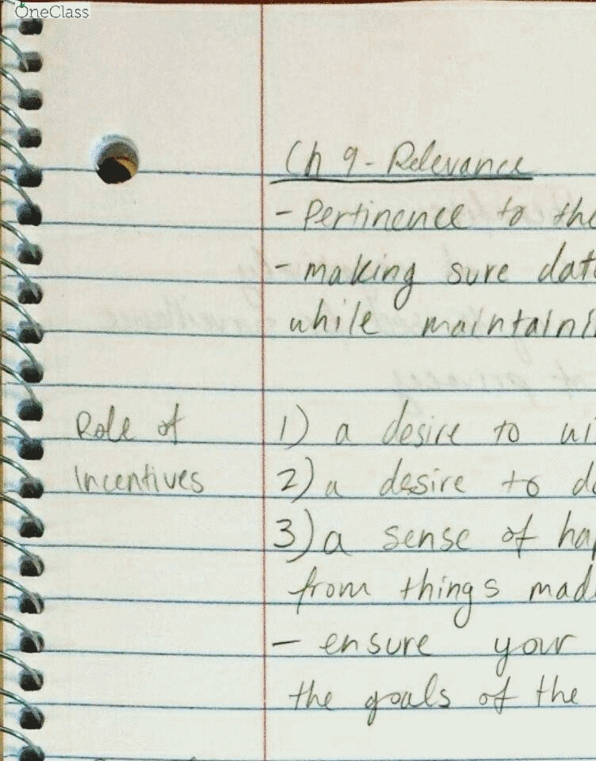 OneClass
Ch 9 - Relevance
- Pertinence to the
- making sure dat
while maintaini
Role of
Incentives
1) a desire to wi
2) a desire to do
3) a sense of hap
from things mad
- ensure your
the goals of the